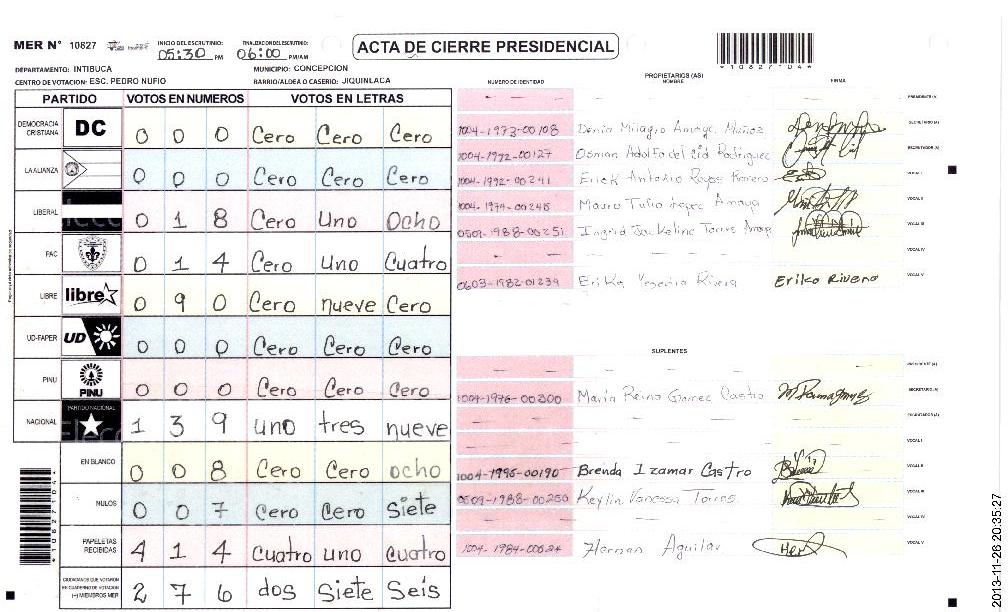 MER N° 10827
INICIO DEL ESCRUTINIO: 05:30 PM
FINALIZACION DEL ESCRUTINIO: 06:00 PM/AM
ACTA DE CIERRE PRESIDENCIAL
*10827104*
DEPARTAMENTO: INTIBUCA
MUNICIPIO: CONCEPCION
CENTRO DE VOTACION: ESC. PEDRO NUFIO
BARRIO/ALDEA O CASERIO: JIQUINLACA
PARTIDO VOTOS EN NUMEROS VOTOS EN LETRAS
DEMOCRACIA CRISTIANA DC 0 0 0 Cero Cero Cero
LA ALIANZA 0 0 0 Cero Cero Cero
LIBERAL 0 1 8 Cero Uno Ocho
PAC 0 1 4 Cero uno Cuatro
LIBRE libre 0 9 0 Cero nueve Cero
UD-FAPER UD 0 0 0 Cero Cero Cero
PINU PINU 0 0 0 Cero Cero Cero
NACIONAL PARTIDO NACIONAL 1 3 9 uno tres nueve
EN BLANCO 0 0 8 Cero Cero ocho
NULOS 0 0 7 Cero Cero Siete
PAPELETAS RECIBIDAS 4 1 4 Cuatro uno cuatro
CIUDADANOS QUE VOTARON EN CUADERNO DE VOTACION (+) MIEMBROS MER 2 7 6 dos Siete Seis
*10827104*
NUMERO DE IDENTIDAD
PROPIETARIOS (AS)
NOMBRE
FIRMA
PRESIDENTE (A)
1004-1973-00108 Denia Milagro Amaya Muñoz SECRETARIO (A)
1004-1972-00127 Osman Adolfo del Cid Rodriguez ESCRUTADOR (A)
1004-1992-00241 Erick Antonio Reyes Romero VOCAL I
1004-1974-00246 Mauro Tulio Lopez Amaya VOCAL II
0501-1988-00251 Ingrid Jackeline Torres Amaya VOCAL III
VOCAL IV
0603-1982-01239 Erika Yesenia Rivera Erika Rivera VOCAL V
SUPLENTES
PRESIDENTE (A)
1004-1976-00300 Maria Reina Gomez Castro SECRETARIO (A)
ESCRUTADOR (A)
VOCAL I
1004-1996-00190 Brenda Izamar Castro VOCAL II
0509-1988-00250 Keylin Vanessa Torres VOCAL III
VOCAL IV
1004-1984-00624 Hernan Aguilar VOCAL V
2013-11-26 20:35:27